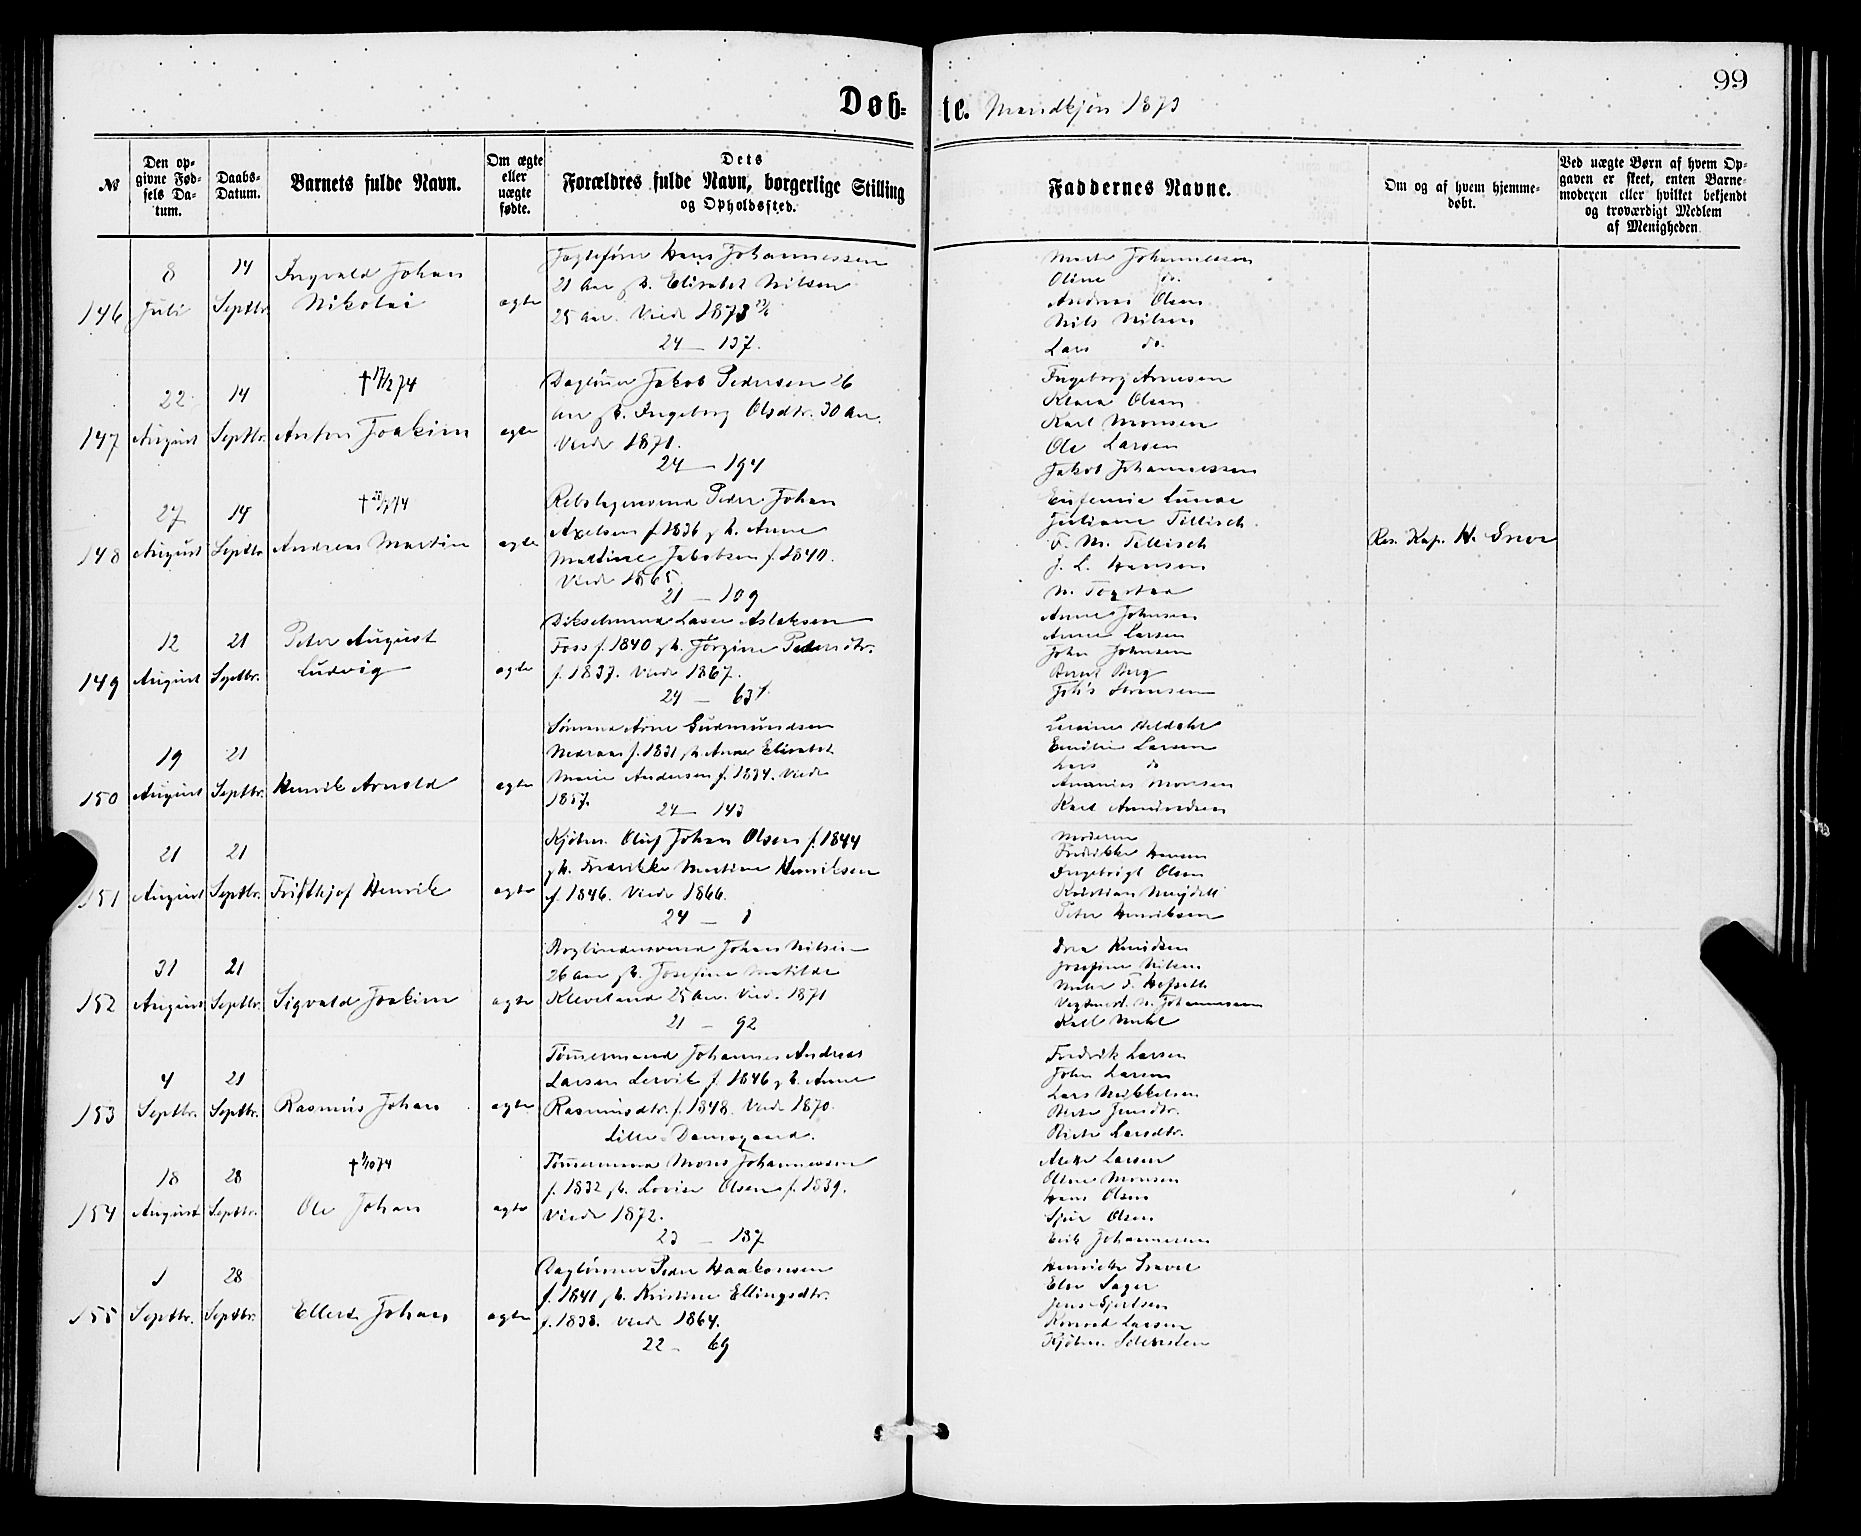 99
Døb- te. Mandkjøn 1873
№
Den op-
givne Fød-
sels Da-
tum.
Daabs-
Datum.
Barnets fulde Navn.
Om ægte
eller
uægte
fødte.
Dets
Forældres fulde Navn, borgerlige Stilling
og Opholdssted.
Faddernes Navne.
Om og af hvem hjemme-
døbt.
Ved uægte Børn af hvem Op-
gaven er skeet, enten Barne-
moderen eller hvilket bekjendt
og troværdigt Medlem
af Menigheden
146
8
Juli
14
Septbr.
Ingvald Johan
Nikolai
ægte
Hans Johannessen
21 Aar g. h. Elisabet Nilsen
25 Aar. Viede 1873
24 — 137.
Johannessen
Oline do.
Andreas Olsen
Nils Nilsen
Lars do.
147
22
August
14
Septbr.
† 17/12 74
Anton Joakim
ægte
Dagløner Jakob Pedersen 26
Aar g. h. Ingeborg Olsdtr. 30 Aar.
Viede 1871.
24 — 194
Ingeborg Arnesen
Klara Olsen
Karl Monsen
Ole Larsen
Jakob Johannessen
148
27
August
14
Septbr
Andreas Martin
ægte
Rebslagersvend Peder Johan
Axelsen f. 1836 g. h. Anne
Martine Jakobsen f. 1840.
Viede 1865.
21 — 109
Eufemia Lunde
Juliane Tillisch
F. M. Tillisch
J. L. Hansen
N. Togstad
Res. Kap. H.
149
12
August
21
Septbr.
Peter August
Ludvig
ægte
Lasse Aslaksen
Foss f. 1840 g. h. Jørgine Pedersdtr.
f. 1837. Viede 1867.
24 — 63
Anne Johnsen
Anne Larsen
John Johnsen
Bernt Berg
Joh's Sørensen
150
19
August
21
Septbr.
Henrik Arnold
ægte
Sømand Arne Gudmundsen
Nedraas f. 1831 g. h. Anne Elisabet
Marie Andersen f. 1834. Viede
1857.
24 — 143
Emilie Larsen
Lars do
Ananias Monsen
Karl Amundsen
151
21
August
21
Septbr.
Fridthjof Henrik
ægte
Kjøbm. Oluf Johan Olsen f. 1844
g. h. Fredrikke Martine Henriksen
f. 1846. Viede 1866.
24 — 1
Moderen
Fredrikke Hansen
Ingebrigt Olsen
Kristian Mugdell
Peter Henriksen
152
31
August
21
Septbr.
Sigvald Joakim
ægte
Bogbindersvend Johan Nilsen
26 Aar g. h. Josefine Matilde
Kleveland 25 Aar. Viede 1871
21 — 92
Knudsen
Josefine Nilsen
153
4
Septbr.
21
Septbr.
Rasmus Johan
ægte
Tømermand Johannes Andreas
Larsen Lervik f. 1846 g. h. Anne
Rasmusdtr. f. 1848. Viede 1870.
Lille Damsgaard.
Fredrik Larsen
John Larsen
Lars Mikkelsen
Berte Jensdtr.
Berte Larsdtr.
154
18
August
28
Septbr.
† 9/10 74
Ole Johan
ægte
Tømermand Mons Johannessen
f. 1832 g. h. Lovise Olsen f. 1839.
Viede 1872.
23 — 187
Larsen
Oline Monsen
Hans Olsen
Olsen
Erik Johannessen
155
1
Septbr.
28
Septbr.
Ellert Johan
ægte
Dagløner Peder Haakonsen
f. 1841 g. h. Kristine Ellingsdtr.
f. 1838. Viede 1864.
22 — 69
Else Sager
Jens Gjertsen
Konrad Larsen
Kjøbm.